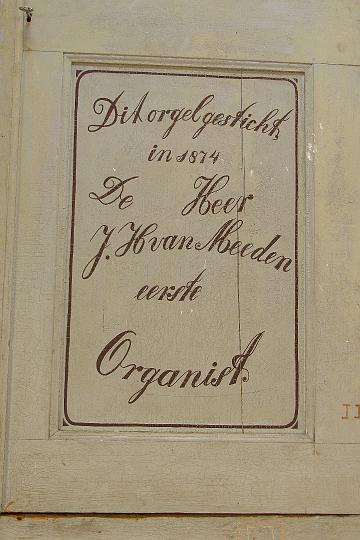 Dit orgel gesticht
in 1874
De Heer
J. H van Meeden
eerste
Organist.
II